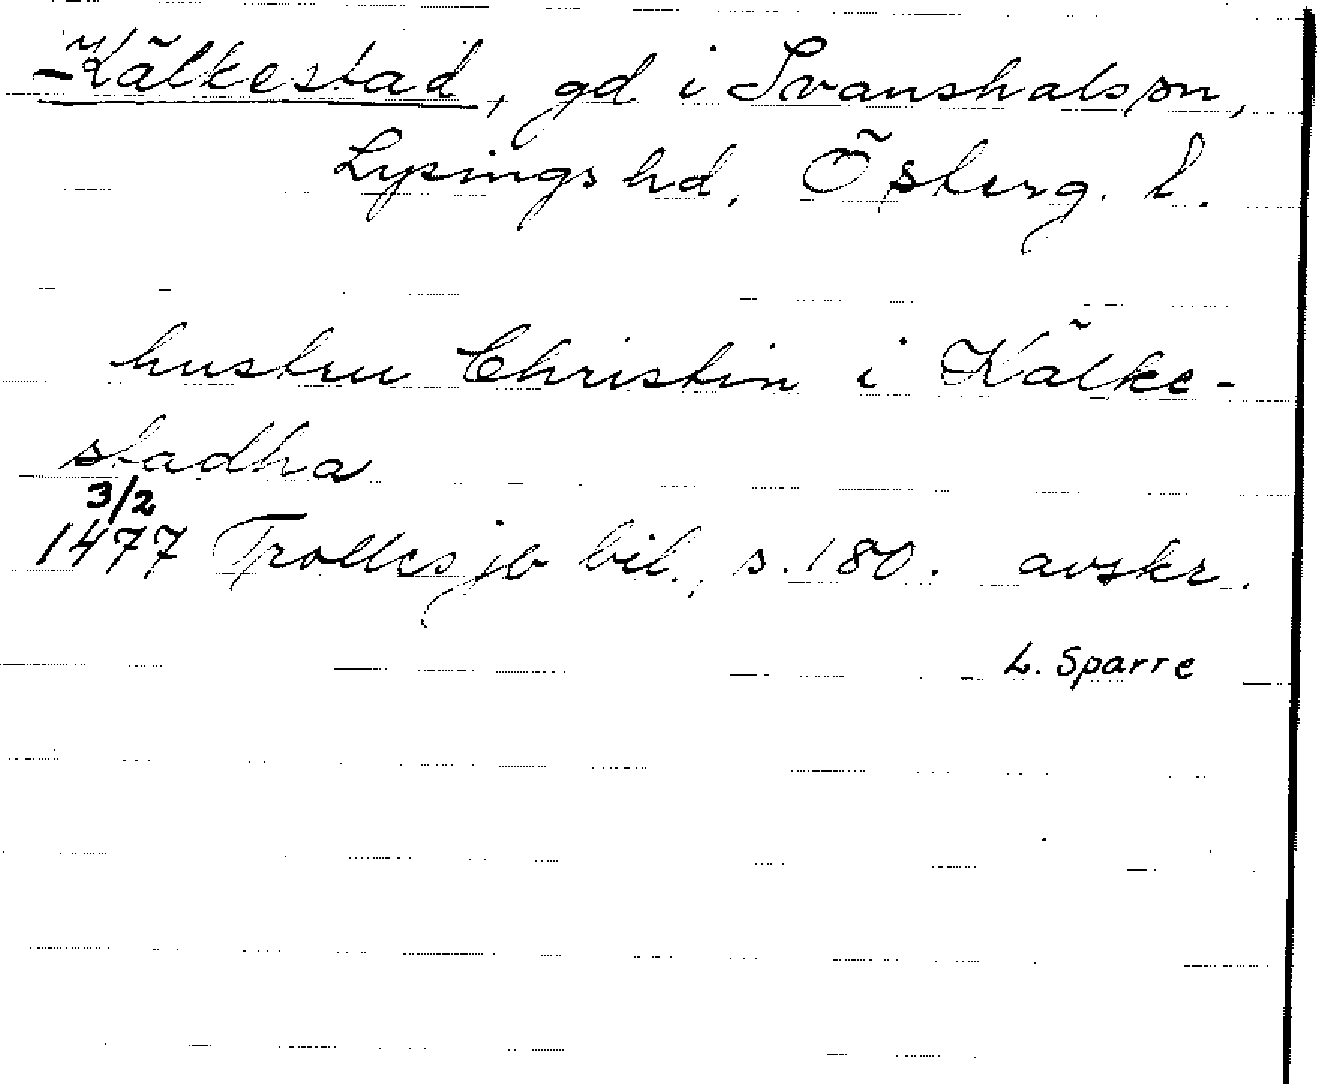 Kälkestad, gd i Svanshals sn,
Lysings hd, Österg. l.
hustru Christin i Kälke-
stadha
3/2
1477 Trolles jb bil., s. 180. avskr.
L. Sparre